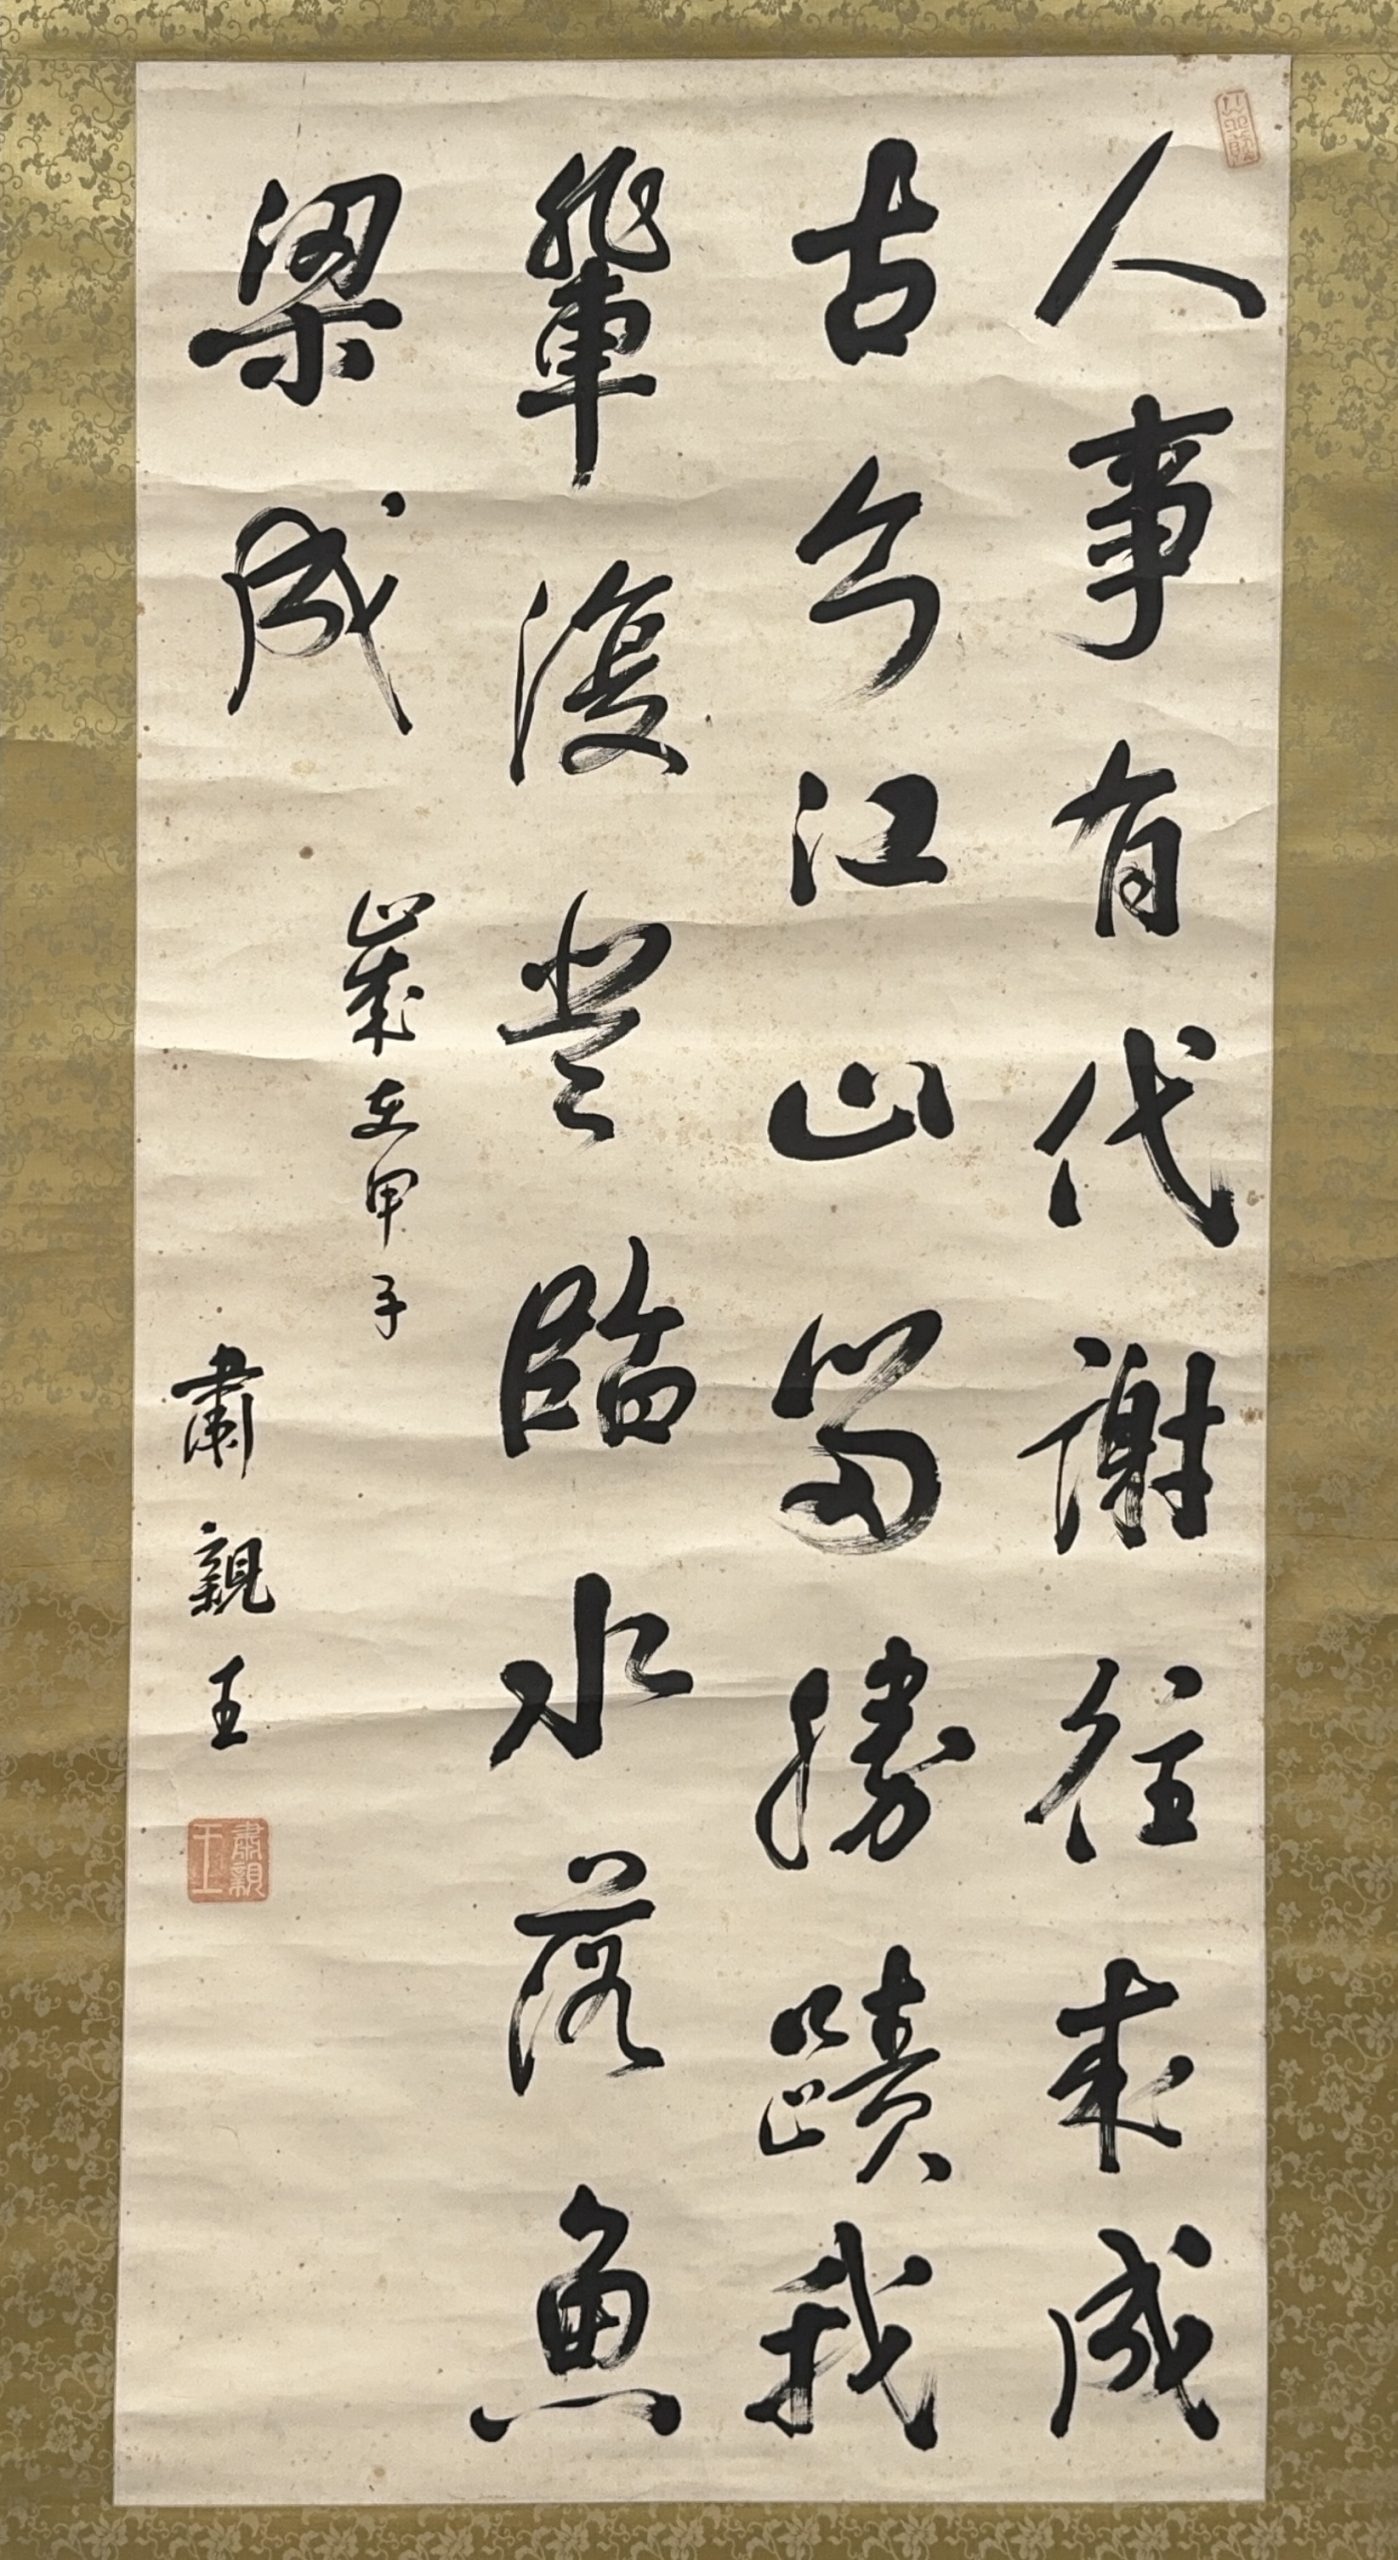 人事有代謝往來成
古今江山留勝蹟我
輩復登臨水落魚
梁成
歲在甲子
肅親王
肅親王